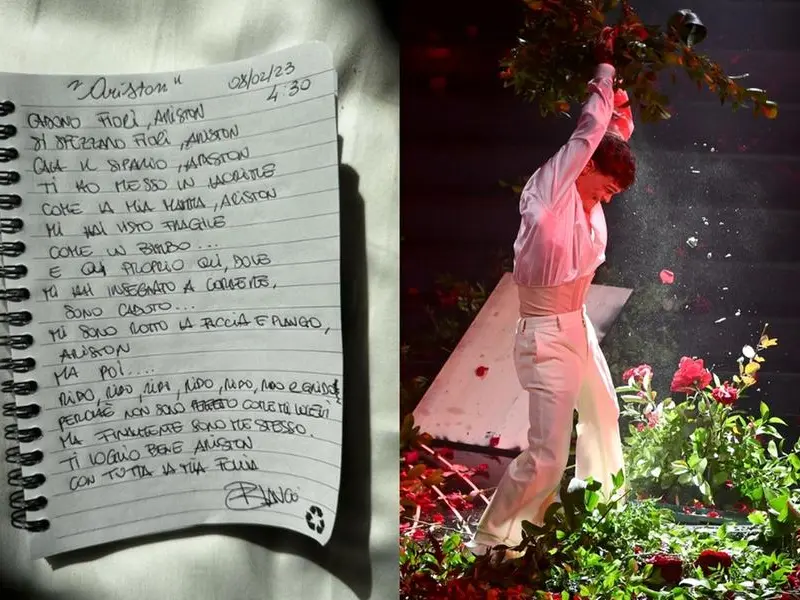 "Ariston" 08/02/23
4:30
CADONO FIORI, ARISTON
SI SPEZZANO FIORI, ARISTON
CALA IL SIPARIO, ARISTON
TI HO MESSO IN LACRIME
COME LA MIA MAMMA, ARISTON
MI HAI VISTO FRAGILE
COME UN BIMBO...
E QUI PROPRIO QUI, DOVE
MI HAI INSEGNATO A CORRERE,
SONO CADUTO...
MI SONO ROTTO LA FACCIA E PIANGO,
ARISTON
MA POI....
RIDO, RIDO, RIDO, RIDO, RIDO, RIDO E GRIDO
PERCHÉ NON SONO COME MI VOLEVI
MA FINALMENTE SONO ME STESSO.
TI VOGLIO BENE ARISTON
CON TUTTA LA MIA FOLLIA
BLANCO